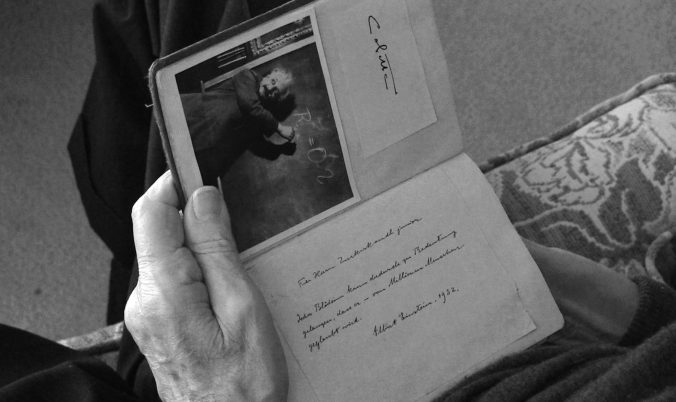 R = 0 ?
Für Herrn Zuckerkandl junior
Jeder Blödsinn kann dadurch zu Bedeutung
gelangen, dass er – von Millionen Menschen
geglaubt wird.
Albert Einstein. 1932.